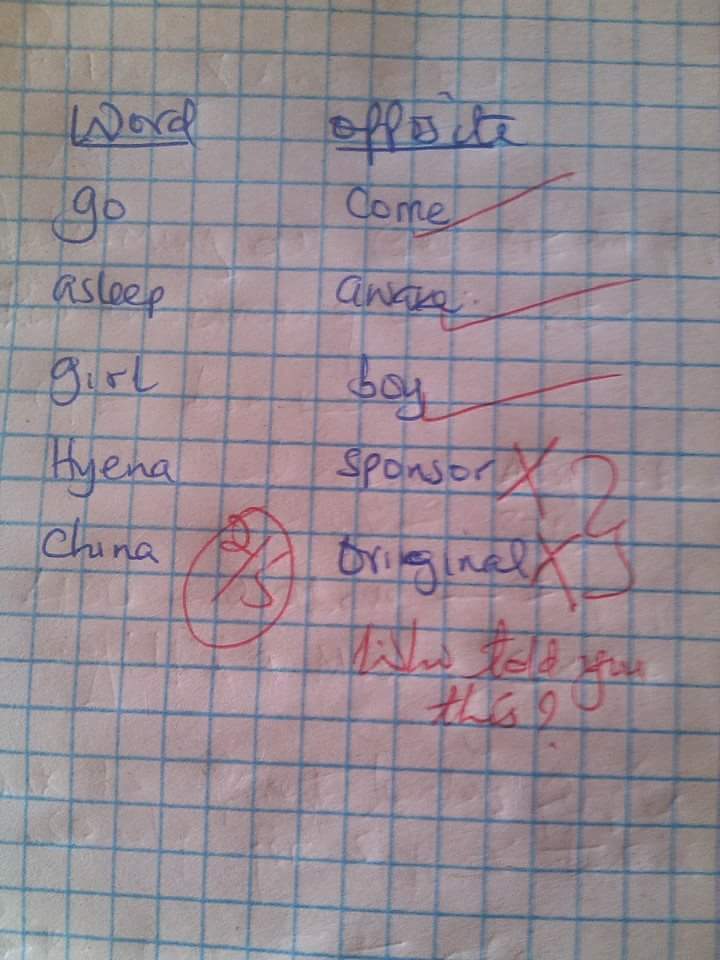 Word opposite
go come
asleep awake
girl boy
Hyena Sponsor X
China 2/5 Original X
Who told you
this?